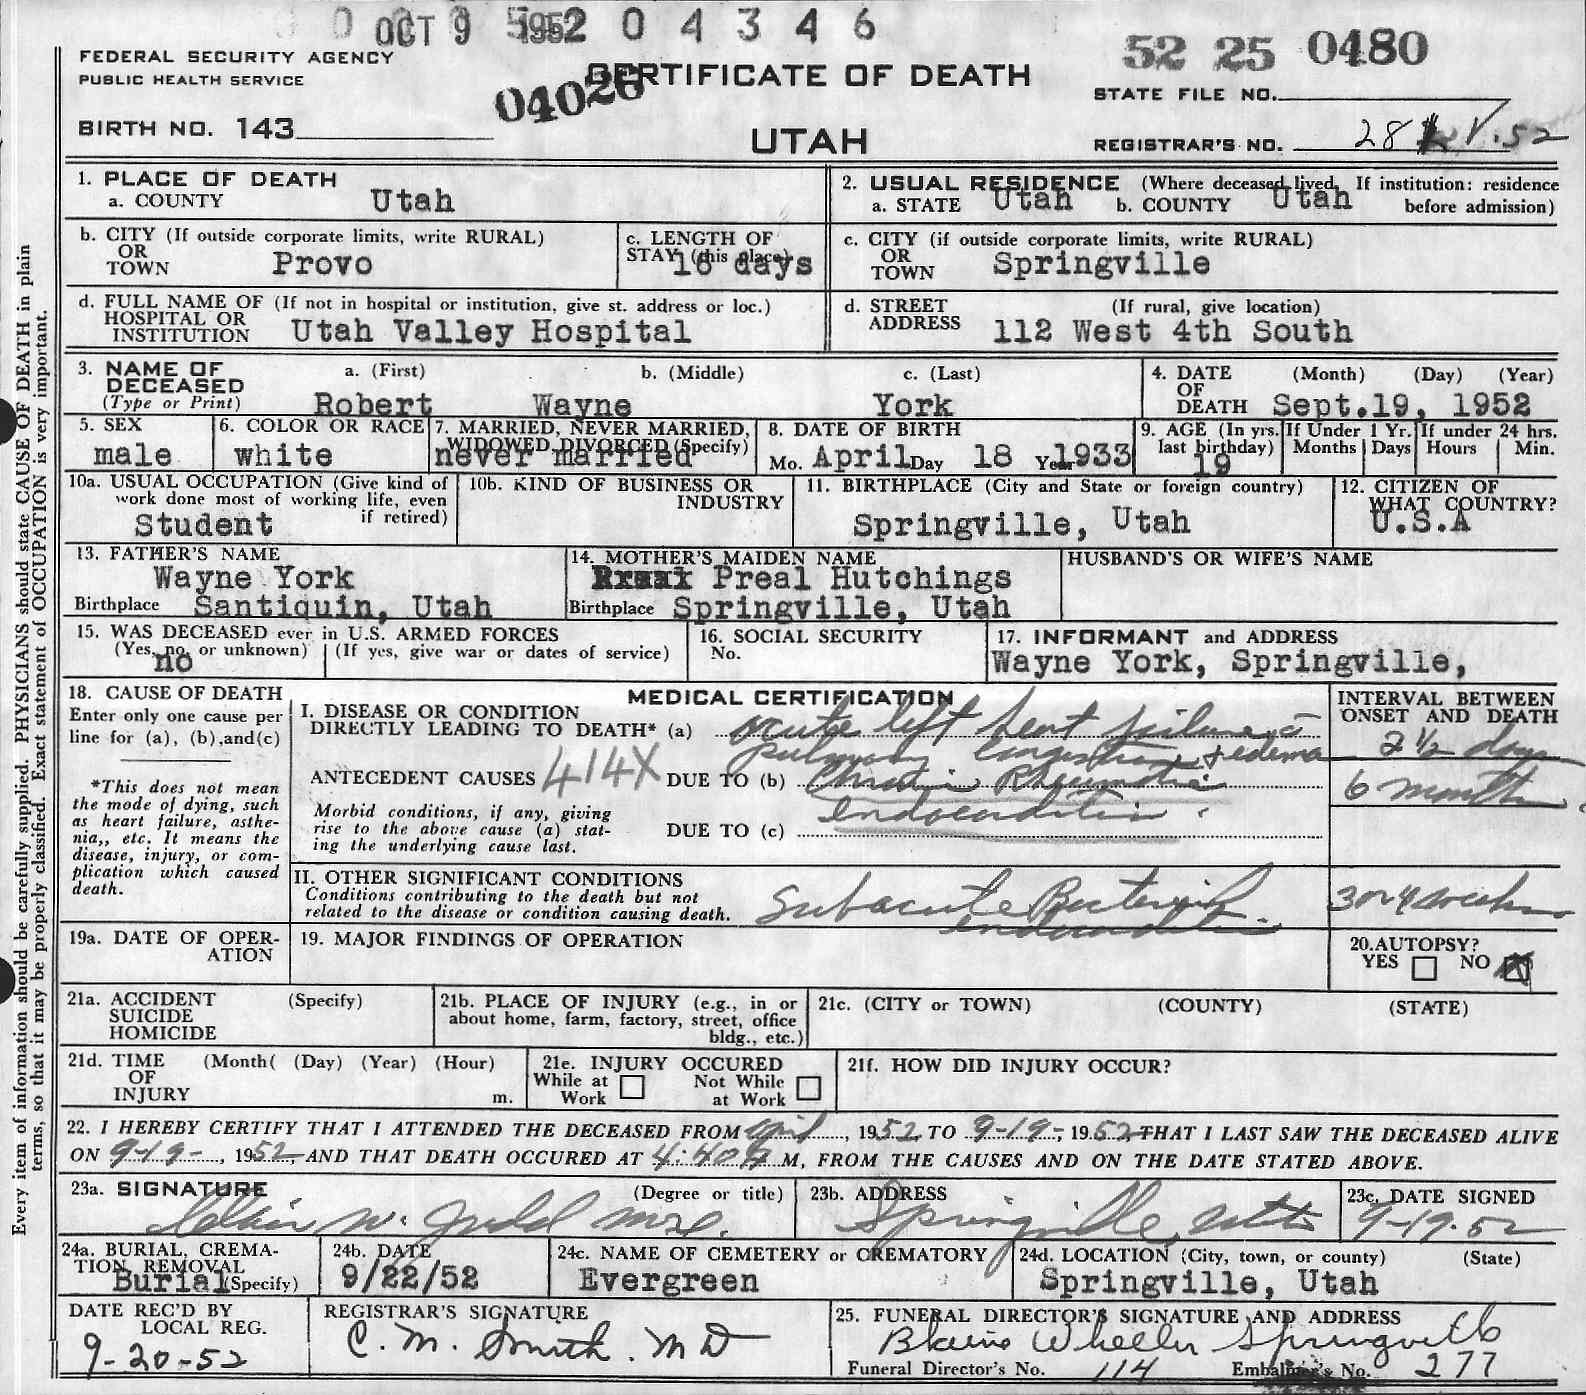 OCT 9 1952 0 4 3 4 6
FEDERAL SECURITY AGENCY
PUBLIC HEALTH SERVICE
CERTIFICATE OF DEATH
UTAH
52 25 0480
STATE FILE NO.
04026
BIRTH NO. 143
REGISTRAR'S NO. 28 V.52
1. PLACE OF DEATH
a. COUNTY Utah
2. USUAL RESIDENCE (Where deceased lived. If institution: residence before admission)
a. STATE Utah b. COUNTY Utah
b. CITY (If outside corporate limits, write RURAL)
OR
TOWN Provo
c. LENGTH OF
STAY (this place) 16 days
c. CITY (if outside corporate limits, write RURAL)
OR
TOWN Springville
d. FULL NAME OF (If not in hospital or institution, give st. address or loc.)
HOSPITAL OR
INSTITUTION Utah Valley Hospital
d. STREET (If rural, give location)
ADDRESS 112 West 4th South
3. NAME OF DECEASED a. (First) b. (Middle) c. (Last)
(Type or Print) Robert Wayne York
4. DATE (Month) (Day) (Year)
OF
DEATH Sept.19, 1952
5. SEX
male
6. COLOR OR RACE
white
7. MARRIED, NEVER MARRIED,
WIDOWED DIVORCED (Specify)
never married
8. DATE OF BIRTH
Mo. April Day 18 Year 1933
9. AGE (In yrs. last birthday)
19
If Under 1 Yr.
Months Days
If under 24 hrs.
Hours Min.
10a. USUAL OCCUPATION (Give kind of
work done most of working life, even
if retired)
Student
10b. KIND OF BUSINESS OR
INDUSTRY
11. BIRTHPLACE (City and State or foreign country)
Springville, Utah
12. CITIZEN OF
WHAT COUNTRY?
U.S.A
13. FATHER'S NAME
Wayne York
Birthplace Santiquin, Utah
14. MOTHER'S MAIDEN NAME
Preal Hutchings
Birthplace Springville, Utah
HUSBAND'S OR WIFE'S NAME
15. WAS DECEASED ever in U.S. ARMED FORCES
(Yes, no, or unknown) (If yes, give war or dates of service)
no
16. SOCIAL SECURITY
No.
17. INFORMANT and ADDRESS
Wayne York, Springville,
18. CAUSE OF DEATH
Enter only one cause per
line for (a), (b),and(c)
*This does not mean
the mode of dying, such
as heart failure, asthe-
nia,, etc. It means the
disease, injury, or com-
plication which caused
death.
MEDICAL CERTIFICATION
I. DISEASE OR CONDITION
DIRECTLY LEADING TO DEATH* (a) acute left heart failure c̄
pulmonary congestion + edema
ANTECEDENT CAUSES 414X DUE TO (b) Chronic Rheumatic
Endocarditis.
Morbid conditions, if any, giving
rise to the above cause (a) stat-
ing the underlying cause last.
DUE TO (c)
INTERVAL BETWEEN
ONSET AND DEATH
2 1/2 days
6 months
II. OTHER SIGNIFICANT CONDITIONS
Conditions contributing to the death but not
related to the disease or condition causing death.
Subacute Bacterial
endocarditis
3 or 4 weeks
19a. DATE OF OPER-
ATION
19. MAJOR FINDINGS OF OPERATION
20.AUTOPSY?
YES NO X
21a. ACCIDENT (Specify)
SUICIDE
HOMICIDE
21b. PLACE OF INJURY (e.g., in or
about home, farm, factory, street, office
bldg., etc.)
21c. (CITY or TOWN) (COUNTY) (STATE)
21d. TIME (Month( (Day) (Year) (Hour)
OF
INJURY m.
21e. INJURY OCCURED
While at Work
Not While at Work
21f. HOW DID INJURY OCCUR?
22. I HEREBY CERTIFY THAT I ATTENDED THE DECEASED FROM April, 1952, TO 9-19-, 1952 THAT I LAST SAW THE DECEASED ALIVE
ON 9-19-, 1952, AND THAT DEATH OCCURED AT 4:40 M, FROM THE CAUSES AND ON THE DATE STATED ABOVE.
23a. SIGNATURE (Degree or title)
Clair W. Judd M.D.
23b. ADDRESS
Springville, Utah
23c. DATE SIGNED
9-19-52
24a. BURIAL, CREMA-
TION, REMOVAL
Burial (Specify)
24b. DATE
9/22/52
24c. NAME OF CEMETERY or CREMATORY
Evergreen
24d. LOCATION (City, town, or county) (State)
Springville, Utah
DATE REC'D BY
LOCAL REG.
9-20-52
REGISTRAR'S SIGNATURE
C. M. Smith. MD
25. FUNERAL DIRECTOR'S SIGNATURE AND ADDRESS
Blaine Wheeler Springville
Funeral Director's No. 114 Embalmer's No. 277
Every item of information should be carefully supplied. PHYSICIANS should state CAUSE OF DEATH in plain
terms, so that it may be properly classified. Exact statement of OCCUPATION is very important.